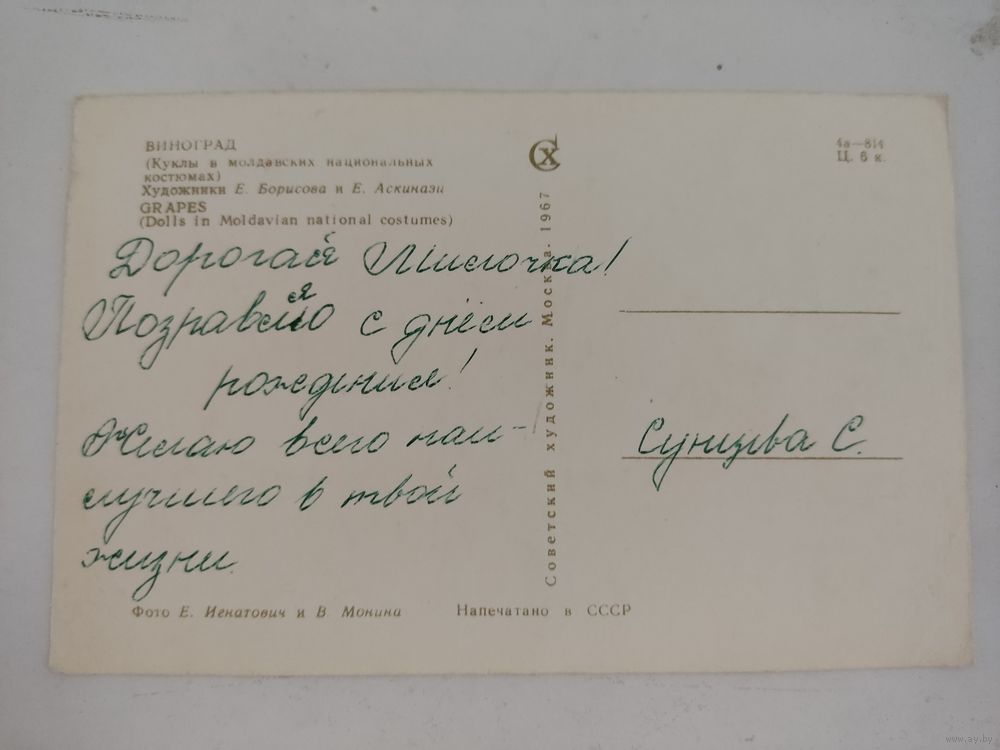 ВИНОГРАД
(Куклы в молдавских национальных
костюмах)
Художники Е. Борисова и Е. Аскинази
GRAPES
(Dolls in Moldavian national costumes)
Дорогая Милочка!
Поздравляю с днём
рождения!
Желаю всего наи-
лучшего в твой
жизни.
Фото Е. Игнатович и В. Монина
Напечатано в СССР
Советский художник. Москва. 1967
СХ
4а—814
Ц. 6 к.
С.
www.ay.by